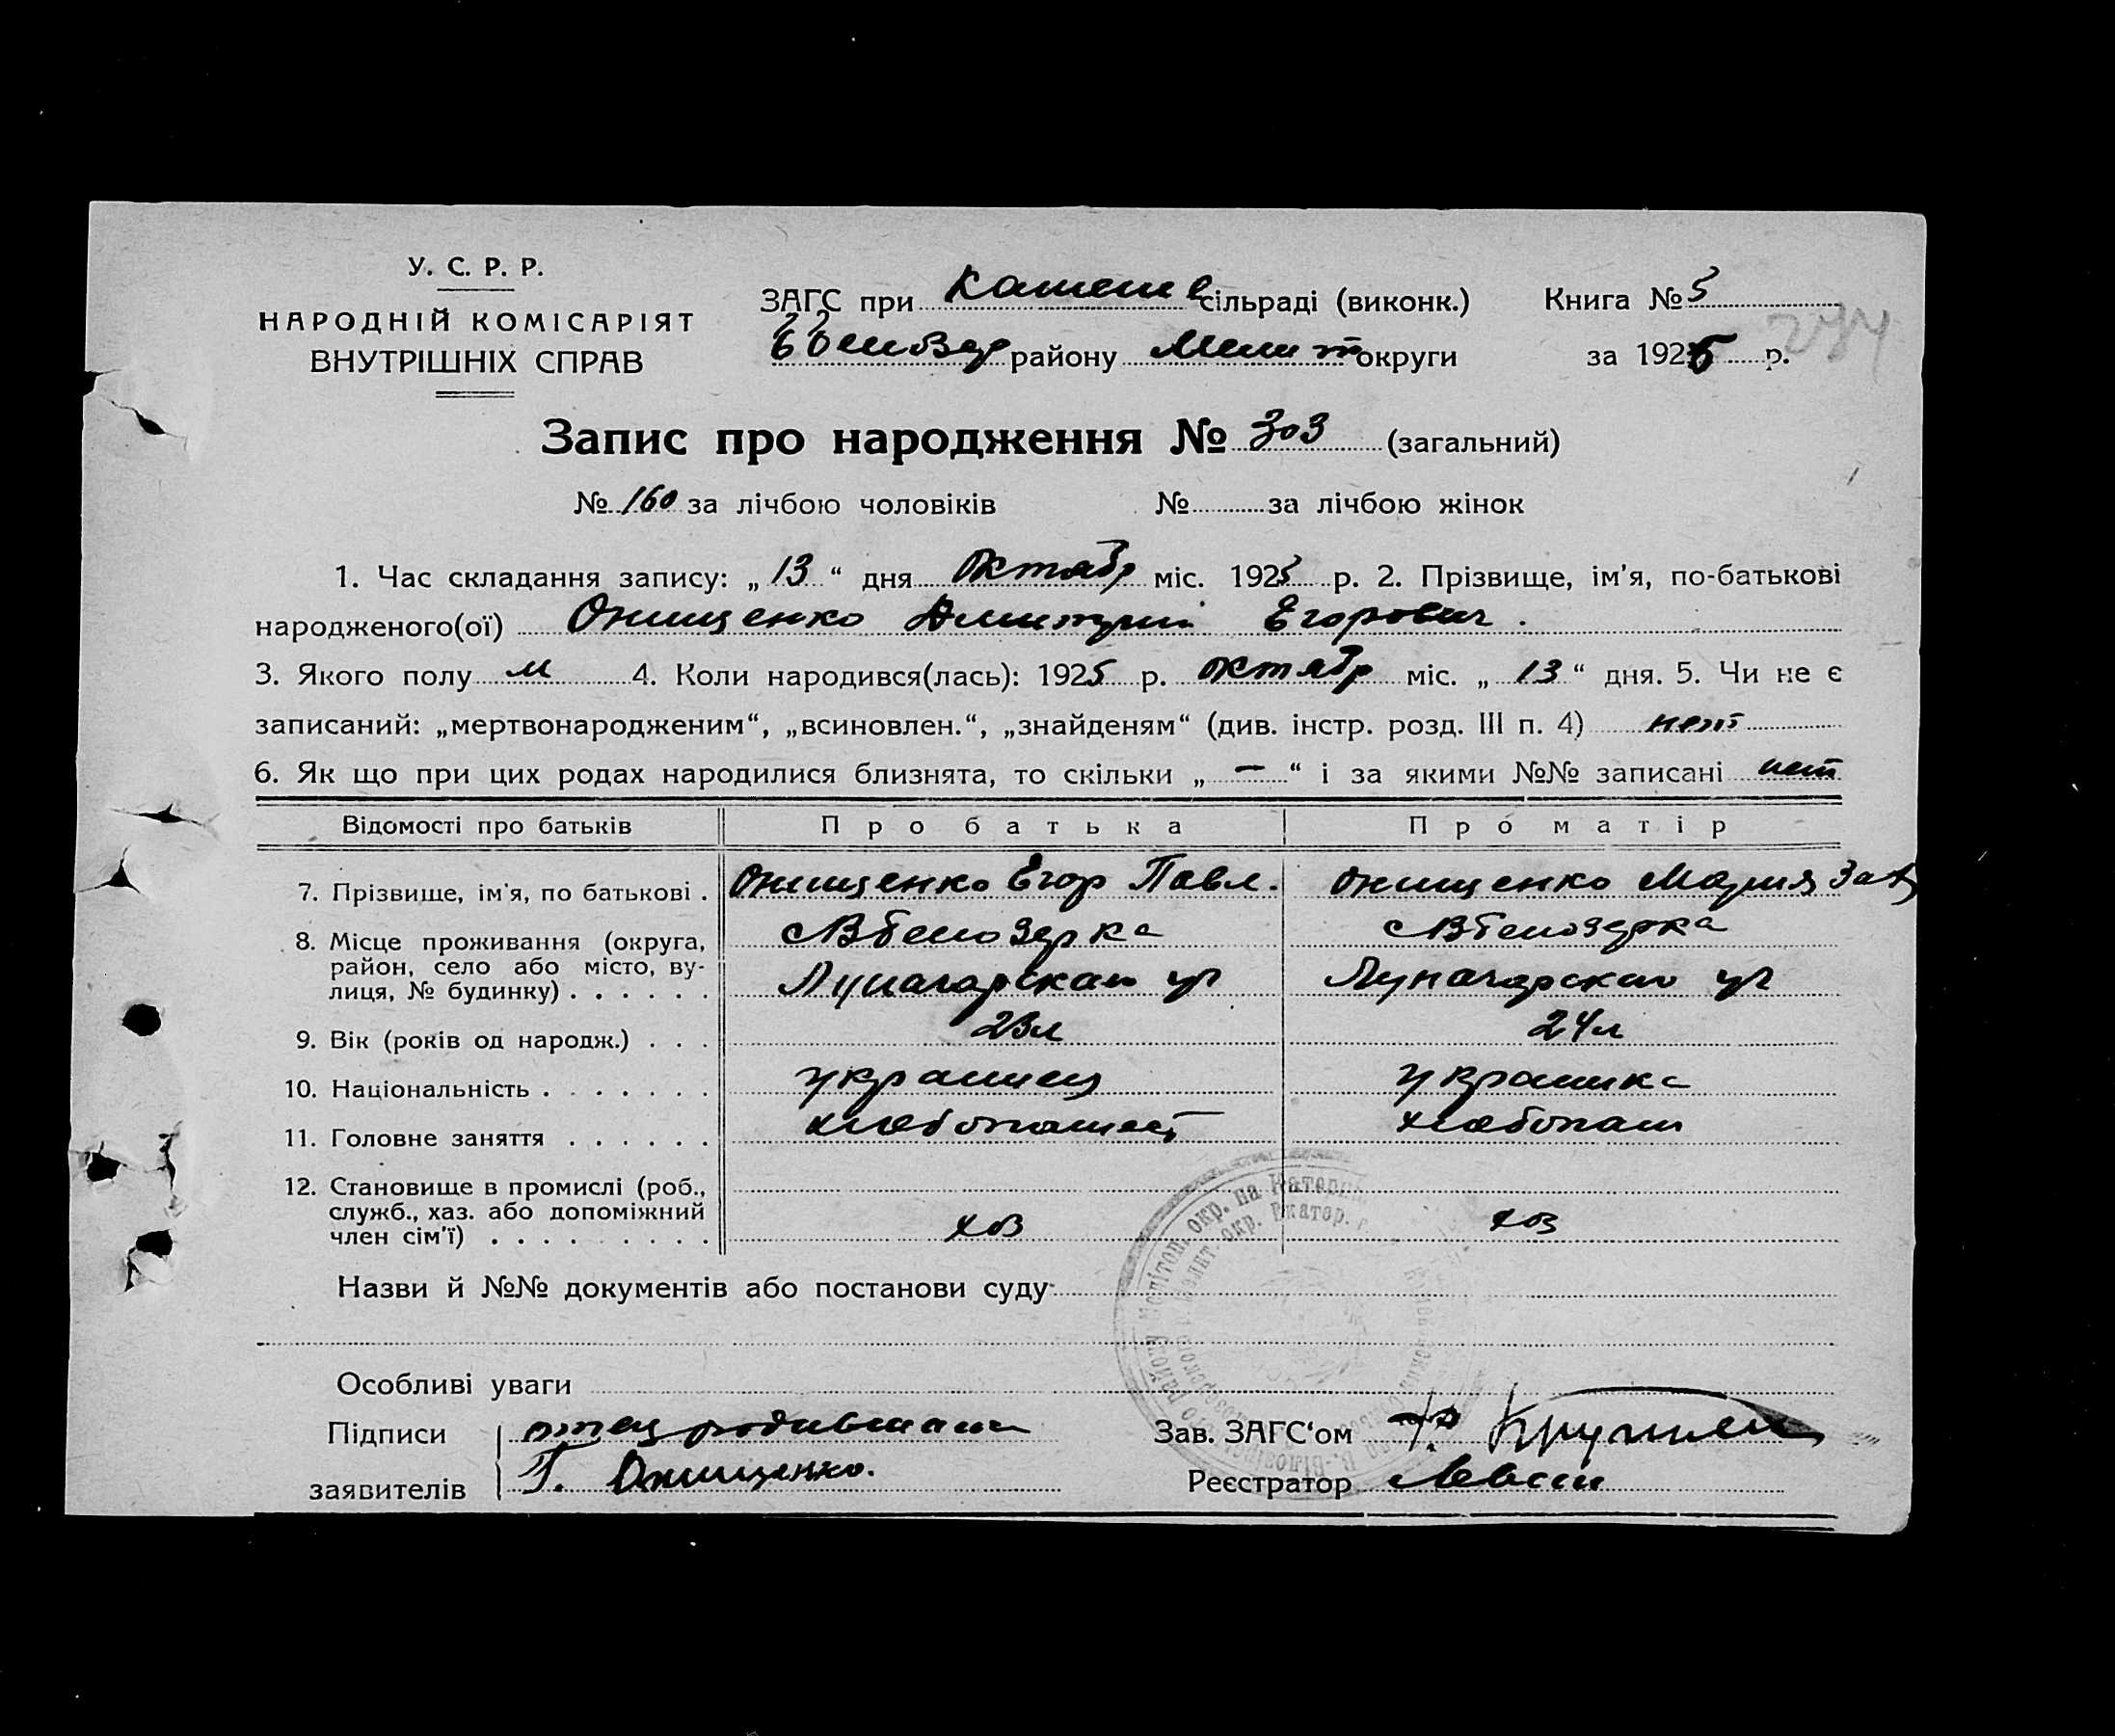 У. С. Р. Р.
НАРОДНІЙ КОМІСАРІЯТ
ВНУТРІШНІХ СПРАВ
ЗАГС при сільраді (виконк.) Книга № 5
району Мелит округи за 1925 р.
274
Запис про народження № 303 (загальний)
№ 160 за лічбою чоловіків № за лічбою жінок
1. Час складання запису: „ 13 “ дня Октябр міс. 1925 р. 2. Прізвище, ім'я, по-батькові
народженого(ої) Онищенко Дмитрий Егорович.
3. Якого полу м 4. Коли народився(лась): 1925 р. октябр міс. „ 13 “ дня. 5. Чи не є
записаний: „мертвонародженим“, „всиновлен.“, „знайденям“ (див. інстр. розд. III п. 4) нет
6. Як що при цих родах народилися близнята, то скільки „ — “ і за якими №№ записані нет
Відомості про батьків Про батька Про матір
7. Прізвище, ім'я, по батькові . Онищенко Егор Павл. Онищенко Мария Зах
8. Місце проживання (округа, район, село або місто, вулиця, № будинку) . . . . . . с В белозерка с В белозерка
Луначарская ул Луначарская ул
9. Вік (років од народж.) . . . 23л 24л
10. Національність . . . . . . . украинец украинка
11. Головне заняття . . . . . . хлебопашец хлебопаш
12. Становище в промислі (роб., служб., хаз. або допоміжний член сім'ї) . . . . . . . . . хоз хоз
Назви й №№ документів або постанови суду
Особливі уваги
Підписи отец Зав. ЗАГС'ом
заявителів Г. Онищенко. Реєстратор